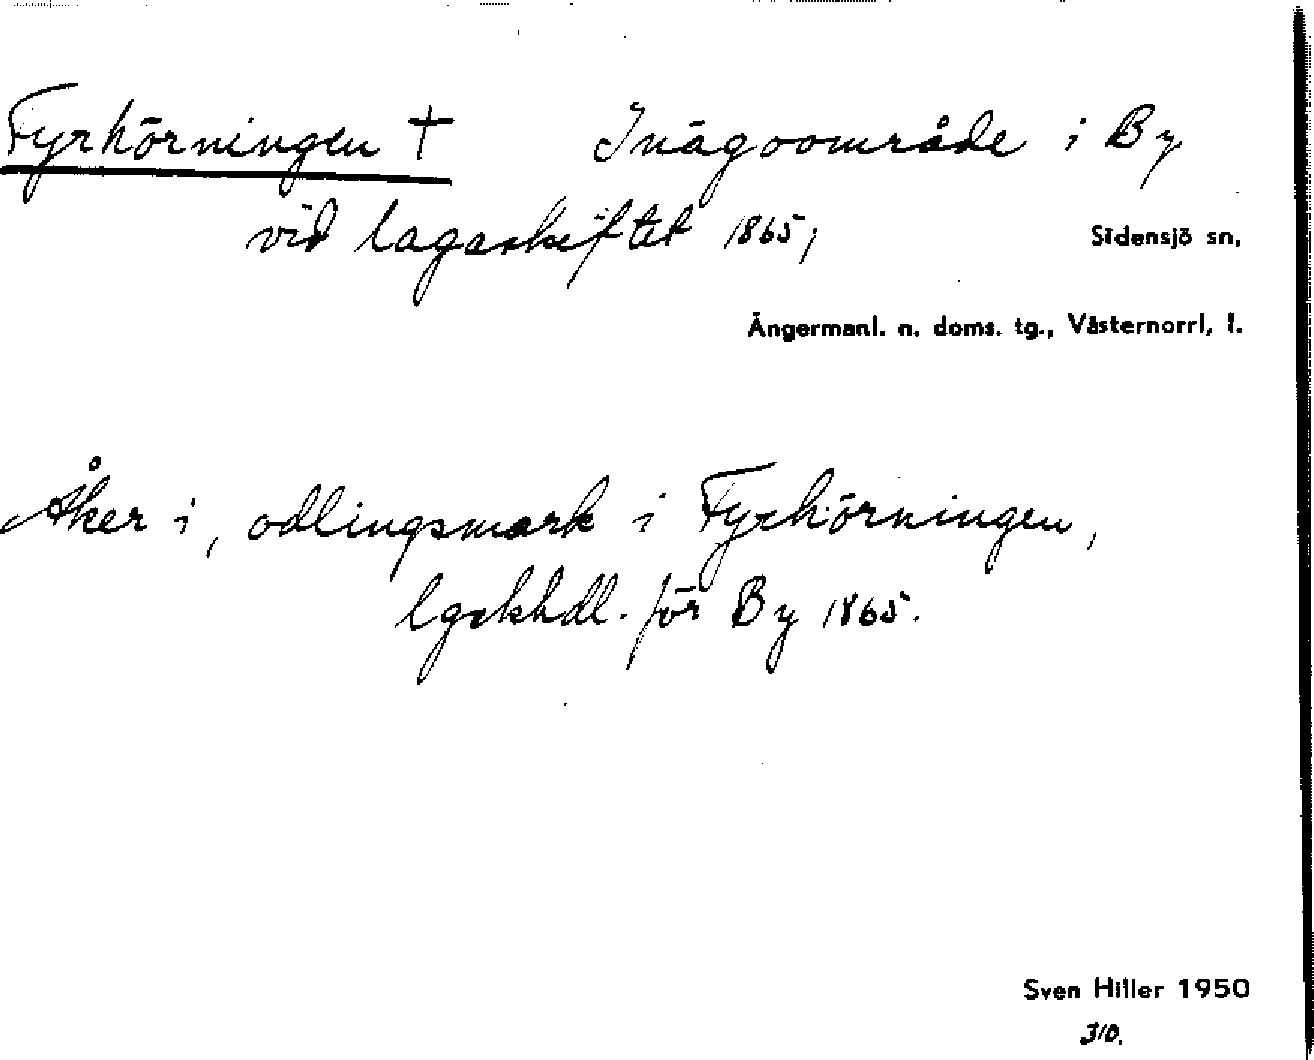 Fyrhörningen † Inägoområde i By
vid lagaskiftet 1865;
Sidensjö sn,
Ångermanl. n. doms. tg., Västernorrl. l.
Åker i, odlingsmark i Fyrhörningen,
lgskhdl. för By 1865.
Sven Hiller 1950
310.